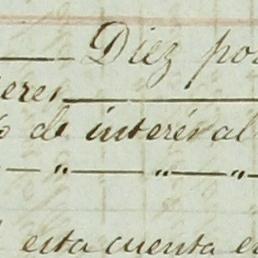 Diez por
% de interés al
— " — " — " —
esta cuenta en